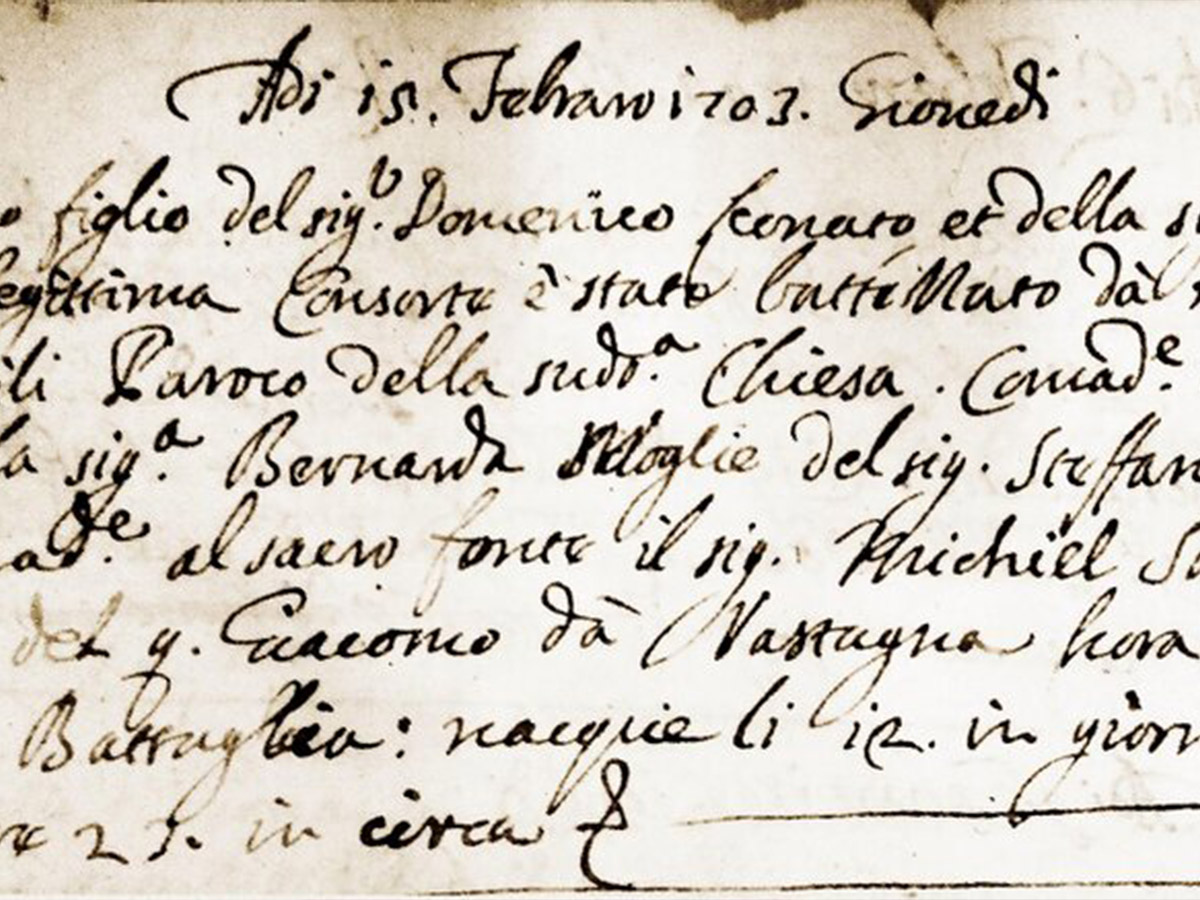 Adi 15. Febraro 1703. Giovedi
figlio del sig.r Domenico et della
legittima Consorte è stato battezzato dà
Paroco della sud.a Chiesa. Comad.e
la sig.a Bernarda Moglie del sig. Steffan
ad.e al sacro fonte il sig. Michiel
del q. Giacomo dà Vastagna hora
Battaglia: nacque li 12. in giorn
in circa